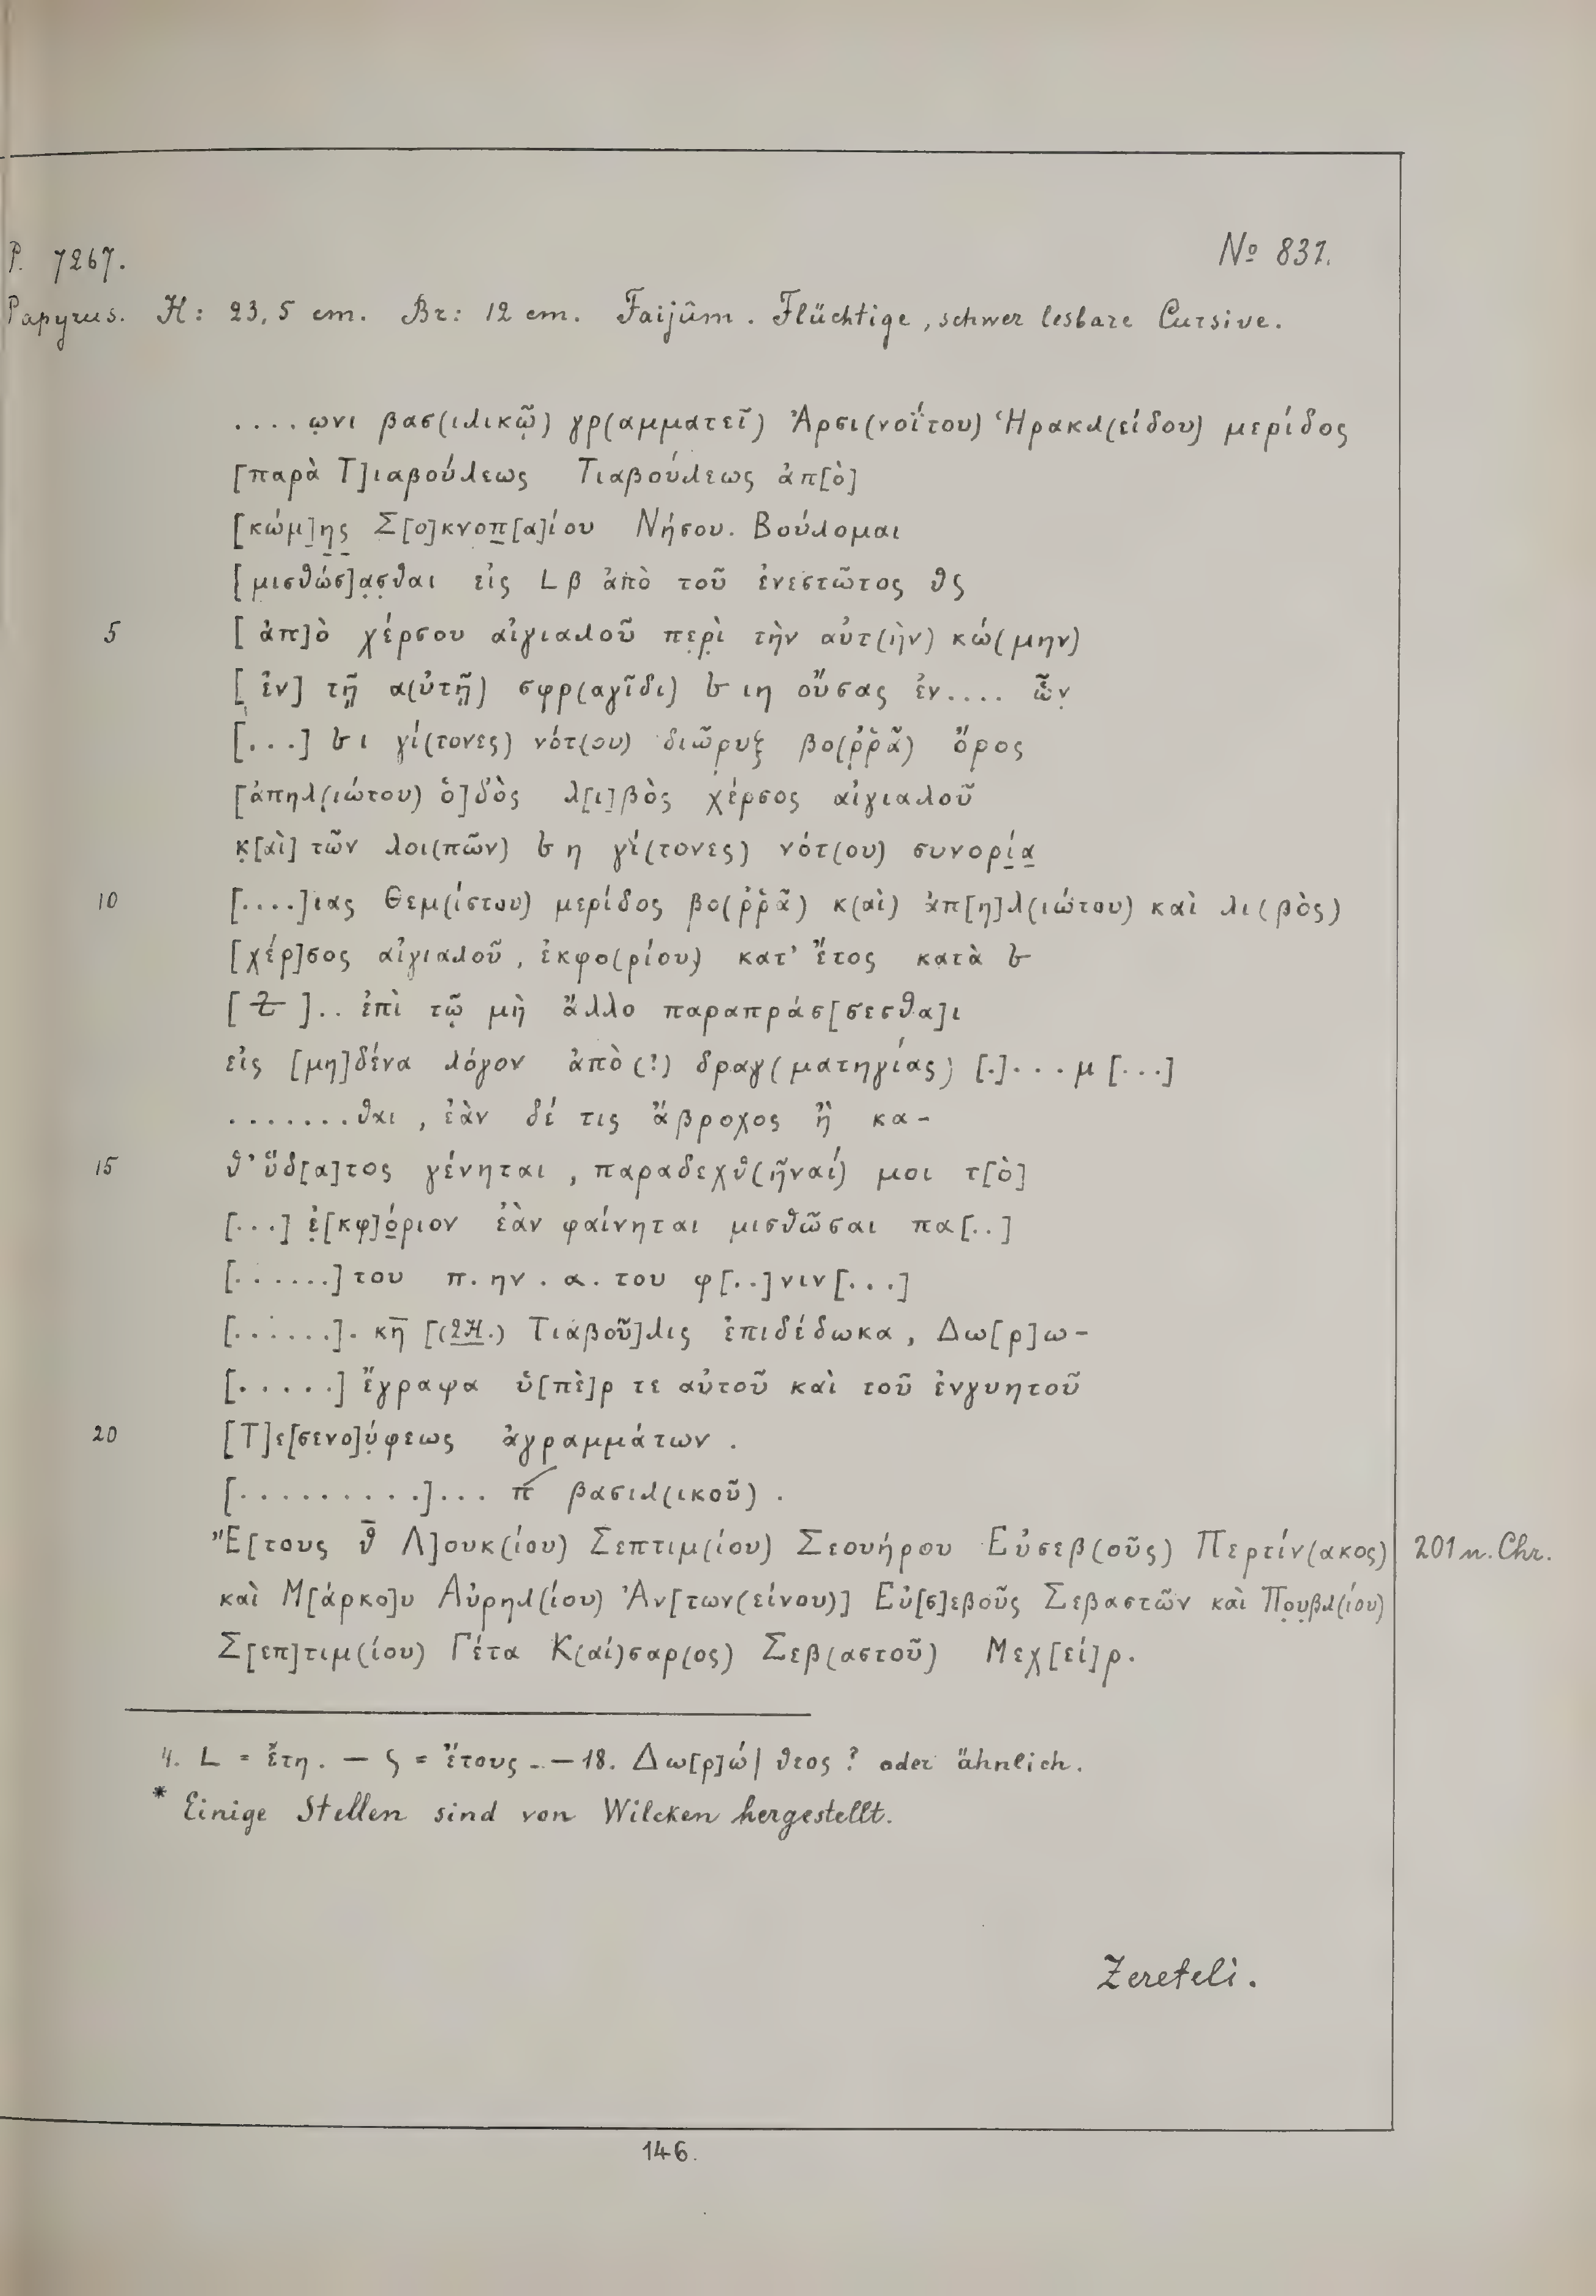 P. 7267.
No 831.
Papyrus. H: 23,5 cm. Br: 12 cm. Faijûm. Flüchtige, schwer lesbare Cursive.
....ω̣νι βασ(ιλικῷ) γρ(αμματεῖ) Ἀρσι(νοΐτου) Ἡρακλ(είδου) μερίδος
[παρὰ Τ]ιαβούλεως Τιαβούλεως ἀπ[ὸ]
[κώμ]ης Σ[ο]κνοπ[α]ίου Νήσου. Βούλομαι
[μισθώσ]α̣σ̣θαι εἰς L β ἀπὸ τοῦ ἐνεστῶτος θς
5 [ἀπ]ὸ χέρσου αἰγιαλοῦ πε̣ρ̣ὶ τὴν αὐτ(ὴν) κώ(μην)
[ἐν] τῇ α(ὐτῇ) σφρ(αγῖδι) 𐅵 ιη οὔσας ἐν.... ὧν̣
[...] 𐅵 ι γί(τονες) νότ(ου) διῶρυξ βο(ρ̣ρ̣ᾶ) ὄρος
[ἀπηλ(ιώτου) ὁ]δὸς λ[ι]βὸς χέρσος αἰγιαλοῦ
κ̣[αὶ] τῶν λοι(πῶν) 𐅵 η γί(τονες) νότ(ου) συνορία
10 [....]ιας Θεμ(ίστου) μερίδος βο(ῤῥᾶ) κ(αὶ) ἀπ[η]λ(ιώτου) καὶ λι(βὸς)
[χέρ]σος αἰγιαλοῦ, ἐκφο(ρίου) κατ' ἔτος κατὰ 𐅵
[ ].. ἐπὶ τῷ μὴ ἄλλο παραπράσ[σεσθα]ι
εἰς [μη]δένα λόγον ἀπὸ(?) δραγ(ματηγίας) [.]...μ[...]
.......θαι, ἐὰν δέ τις ἄβροχος ἢ κα-
15 θ' ὕδ[α]τος γένηται, παραδεχθ(ῆναί) μοι τ[ὸ]
[...] ἐ̣[κφ]όριον ἐὰν φαίνηται μισθῶσαι πα[..]
[......]του π.ην.α.του φ[..]νιν[...]
[......]. κη̅ [(2H.) Τιαβοῦ]λις ἐπιδέδωκα, Δω[ρ]ω-
[.....] ἔγραψα ὑ[πὲ]ρ τε αὐτοῦ καὶ τοῦ ἐνγυητοῦ
20 [Τ]ε[σενο]ύ̣φεως ἀγραμμάτων.
[.........]... π βασιλ(ικοῦ).
Ἔ[τους θ̅ Λ]ουκ(ίου) Σεπτιμ(ίου) Σεουήρου Εὐσεβ(οῦς) Περτίν(ακος) 201 n. Chr.
καὶ Μ[άρκο]υ Αὐρηλ(ίου) Ἀν[των(είνου)] Εὐ[σ]εβοῦς Σεβαστῶν καὶ Πο̣υ̣βλ(ίου)
Σ[επ]τιμ(ίου) Γέτα Κ(αί)σαρ(ος) Σεβ(αστοῦ) Μεχ[εί]ρ.
4. L = ἔτη. — ς = ἔτους. — 18. Δω[ρ]ώ|θεος? oder ähnlich.
* Einige Stellen sind von Wilcken hergestellt.
Zereteli.
146.